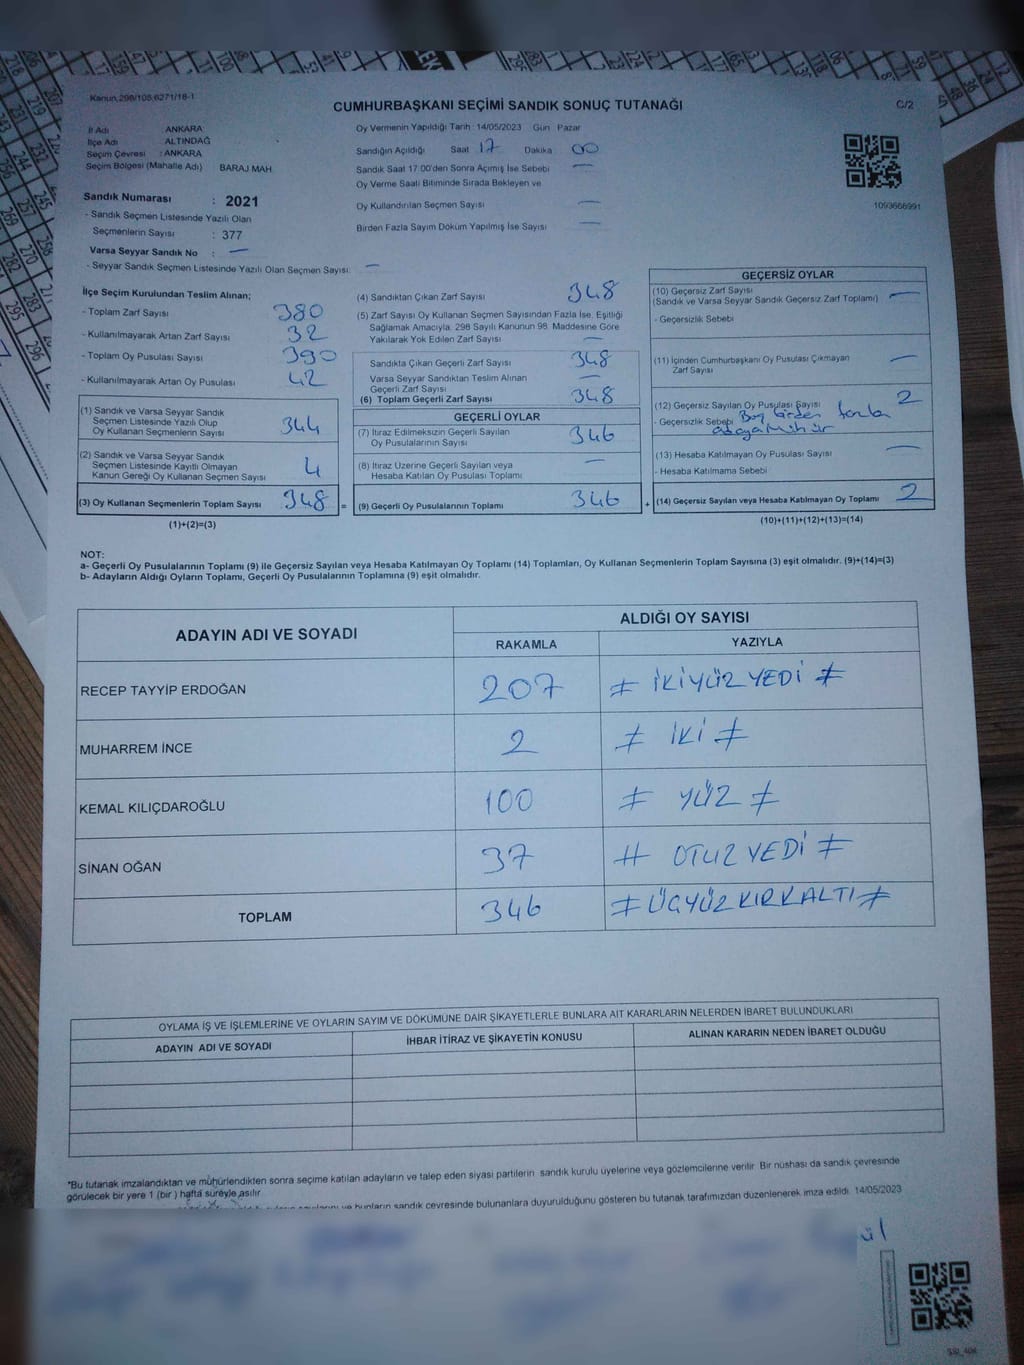 Kanun,298/105,6271/18-1
CUMHURBAŞKANI SEÇİMİ SANDIK SONUÇ TUTANAĞI
C/2
İl Adı ANKARA
İlçe Adı ALTINDAĞ
Seçim Çevresi : ANKARA
Seçim Bölgesi (Mahalle Adı) BARAJ MAH.
Sandık Numarası : 2021
- Sandık Seçmen Listesinde Yazılı Olan
Seçmenlerin Sayısı : 377
Varsa Seyyar Sandık No : —
- Seyyar Sandık Seçmen Listesinde Yazılı Olan Seçmen Sayısı: —
Oy Vermenin Yapıldığı Tarih : 14/05/2023 Gün Pazar
Sandığın Açıldığı Saat 17 Dakika 00
Sandık Saat 17:00'den Sonra Açımış İse Sebebi —
Oy Verme Saati Bitiminde Sırada Bekleyen ve
Oy Kullandırılan Seçmen Sayısı —
Birden Fazla Sayım Döküm Yapılmış İse Sayısı —
1093666991
İlçe Seçim Kurulundan Teslim Alınan;
- Toplam Zarf Sayısı 380
- Kullanılmayarak Artan Zarf Sayısı 32
- Toplam Oy Pusulası Sayısı 390
- Kullanılmayarak Artan Oy Pusulası 42
(1) Sandık ve Varsa Seyyar Sandık
Seçmen Listesinde Yazılı Olup
Oy Kullanan Seçmenlerin Sayısı 344
(2) Sandık ve Varsa Seyyar Sandık
Seçmen Listesinde Kayıtlı Olmayan
Kanun Gereği Oy Kullanan Seçmen Sayısı 4
(3) Oy Kullanan Seçmenlerin Toplam Sayısı 348 =
(1)+(2)=(3)
(4) Sandıktan Çıkan Zarf Sayısı 348
(5) Zarf Sayısı Oy Kullanan Seçmen Sayısından Fazla İse, Eşitliği
Sağlamak Amacıyla, 298 Sayılı Kanunun 98. Maddesine Göre
Yakılarak Yok Edilen Zarf Sayısı —
Sandıkta Çıkan Geçerli Zarf Sayısı 348
Varsa Seyyar Sandıktan Teslim Alınan
Geçerli Zarf Sayısı —
(6) Toplam Geçerli Zarf Sayısı 348
GEÇERLİ OYLAR
(7) İtiraz Edilmeksizin Geçerli Sayılan
Oy Pusulalarının Sayısı 346
(8) İtiraz Üzerine Geçerli Sayılan veya
Hesaba Katılan Oy Pusulası Toplamı —
(9) Geçerli Oy Pusulalarının Toplamı 346 +
GEÇERSİZ OYLAR
(10) Geçersiz Zarf Sayısı
(Sandık ve Varsa Seyyar Sandık Geçersiz Zarf Toplamı) —
- Geçersizlik Sebebi
(11) İçinden Cumhurbaşkanı Oy Pusulası Çıkmayan
Zarf Sayısı —
(12) Geçersiz Sayılan Oy Pusulası Sayısı 2
- Geçersizlik Sebebi Birden fazla
adaya Mühür
(13) Hesaba Katılmayan Oy Pusulası Sayısı —
- Hesaba Katılmama Sebebi
(14) Geçersiz Sayılan veya Hesaba Katılmayan Oy Toplamı 2
(10)+(11)+(12)+(13)=(14)
NOT:
a- Geçerli Oy Pusulalarının Toplamı (9) ile Geçersiz Sayılan veya Hesaba Katılmayan Oy Toplamı (14) Toplamları, Oy Kullanan Seçmenlerin Toplam Sayısına (3) eşit olmalıdır. (9)+(14)=(3)
b- Adayların Aldığı Oyların Toplamı, Geçerli Oy Pusulalarının Toplamına (9) eşit olmalıdır.
ADAYIN ADI VE SOYADI ALDIĞI OY SAYISI
RAKAMLA YAZIYLA
RECEP TAYYİP ERDOĞAN 207 # İKİYÜZYEDİ #
MUHARREM İNCE 2 # İKİ #
KEMAL KILIÇDAROĞLU 100 # YÜZ #
SİNAN OĞAN 37 # OTUZYEDİ #
TOPLAM 346 # ÜÇYÜZKIRKALTI #
OYLAMA İŞ VE İŞLEMLERİNE VE OYLARIN SAYIM VE DÖKÜMÜNE DAİR ŞİKAYETLERLE BUNLARA AİT KARARLARIN NELERDEN İBARET BULUNDUKLARI
ADAYIN ADI VE SOYADI İHBAR İTİRAZ VE ŞİKAYETİN KONUSU ALINAN KARARIN NEDEN İBARET OLDUĞU
*Bu tutanak imzalandıktan ve mühürlendikten sonra seçime katılan adayların ve talep eden siyasi partilerin sandık kurulu üyelerine veya gözlemcilerine verilir. Bir nüshası da sandık çevresinde
görülecek bir yere 1 (bir ) hafta süreyle asılır.
ve bunların sandık çevresinde bulunanlara duyurulduğunu gösteren bu tutanak tarafımızdan düzenlenerek imza edildi. 14/05/2023